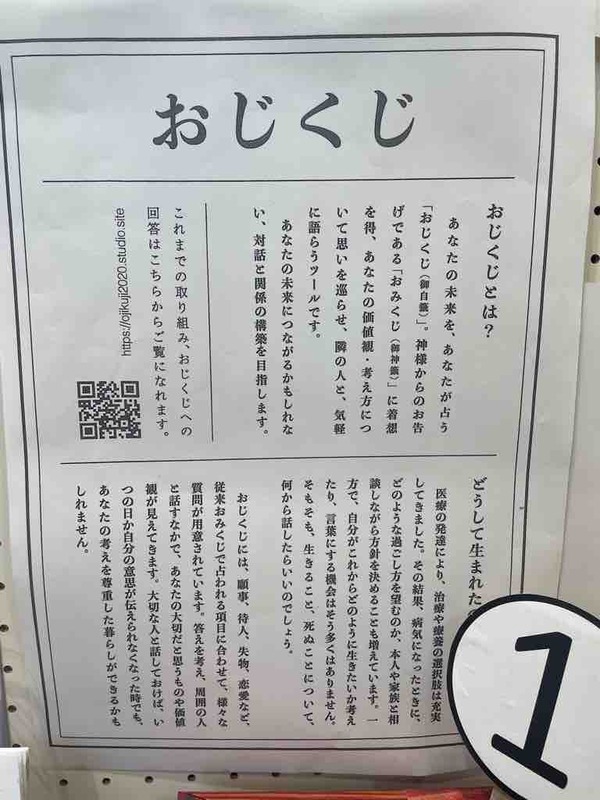 おじくじ
おじくじとは？
あなたの未来を、あなたが占う
「おじくじ（御自籤）」。神様からのお告
げである「おみくじ（御神籤）」に着想
を得、あなたの価値観・考え方につ
いて思いを巡らせ、隣の人と、気軽
に語らうツールです。
あなたの未来につながるかもしれな
い、対話と関係の構築を目指します。
これまでの取り組み、おじくじへの
回答はこちらからご覧になれます。
https://ojikuji2020.studio.site
どうして生まれた
医療の発達により、治療や療養の選択肢は充実
してきました。その結果、病気になったときに、
どのような過ごし方を望むのか、本人や家族と相
談しながら方針を決めることも増えています。一
方で、自分がこれからどのように生きたいか考え
たり、言葉にする機会はそう多くはありません。
そもそも、生きること、死ぬことについて、
何から話したらいいのでしょう。
おじくじには、願事、待人、失物、恋愛など、
従来おみくじで占われる項目に合わせて、様々な
質問が用意されています。答えを考え、周囲の人
と話すなかで、あなたの大切だと思うものや価値
観が見えてきます。大切な人と話しておけば、い
つの日か自分の意思が伝えられなくなった時でも、
あなたの考えを尊重した暮らしができるかも
しれません。
1